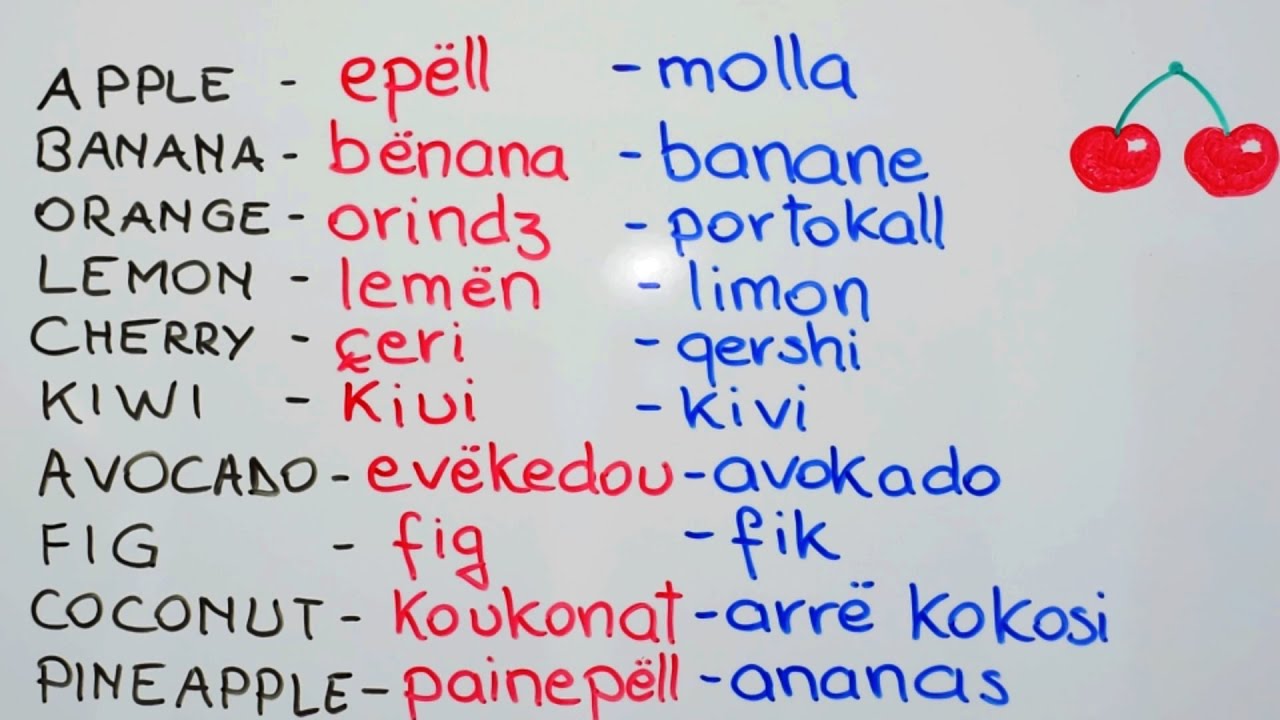 APPLE - epëll - molla
BANANA - bënana - banane
ORANGE - orindʒ - portokall
LEMON - lemën - limon
CHERRY - çeri - qershi
KIWI - Kiui - kivi
AVOCADO - evëkedou - avokado
FIG - fig - fik
COCONUT - Koukonat - arrë kokosi
PINEAPPLE - painepëll - ananas